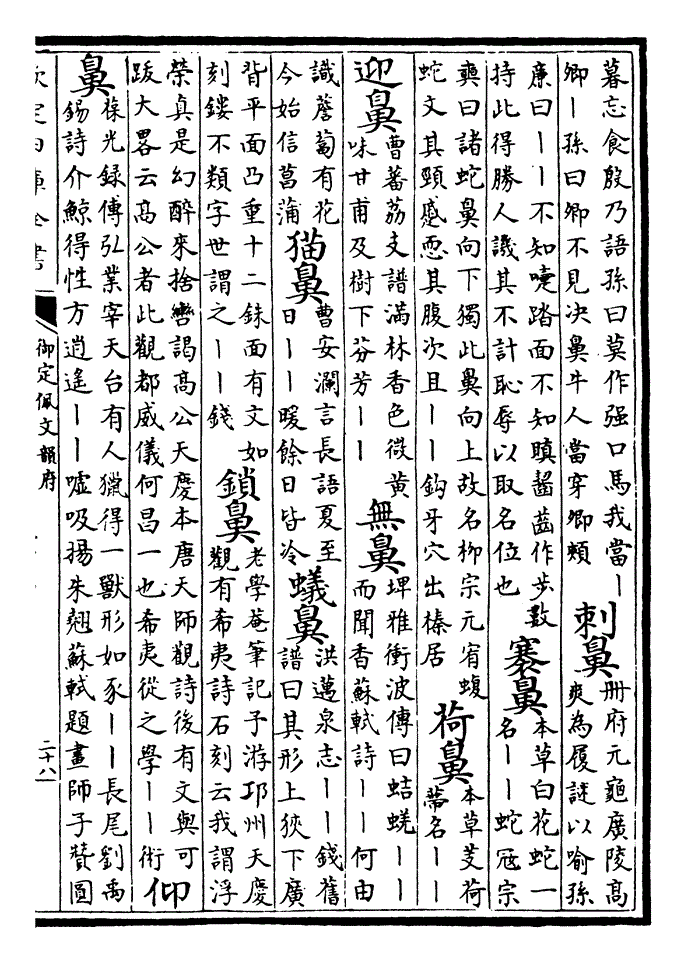 暮忘食殷乃語孫曰莫作强口馬我當丨
卿丨孫曰卿不見决鼻牛人當穿卿頰
刺鼻
冊府元龜廣陵高
爽為屐謎以喻孫
廉曰丨丨不知嚏踏面不知瞋齧齒作步數
持此得勝人譏其不計恥辱以取名位也
褰鼻
本草白花蛇一
名丨丨蛇冦宗
奭曰諸蛇鼻向下獨此鼻向上故名柳宗元宥蝮
蛇文其頸蹙恧其腹次且丨丨鈎牙穴出榛居
荷鼻
本草芰荷
蔕名丨丨
迎鼻
曹蕃荔支譜滿林香色微黄
味甘甫及樹下芬芳丨丨
無鼻
埤雅衝波傳曰蛣蜣丨丨
而聞香蘇軾詩丨丨何由
識薝蔔有花
今始信菖蒲
猫鼻
曹安讕言長語夏至
日丨丨暖餘日皆冷
蟻鼻
洪邁泉志丨丨錢舊
譜曰其形上狹下廣
背平面凸重十二銖面有文如
刻鏤不類字世謂之丨丨錢
鎖鼻
老學菴筆記予游邛州天慶
觀有希夷詩石刻云我謂浮
榮真是幻醉來捨轡謁高公天慶本唐天師觀詩後有文與可
跋大畧云高公者此觀都威儀何昌一也希夷從之學丨丨術
仰鼻
葆光録傳弘業宰天台有人獵得一獸形如豕丨丨長尾劉禹
錫詩介鯨得性方逍遥丨丨嘘吸揚朱翹蘇軾題畫師子贊圓
欽定四庫全書
御定佩文韻府
二十八